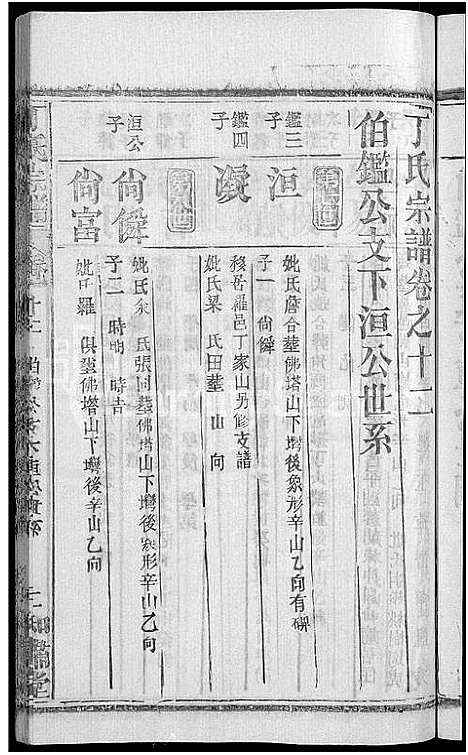 丁氏宗譜卷之十二
伯鑑公支下洹公世系
鑑三子
洹
妣氏詹合塟佛塔山下塆後象形辛山乙向有碑
子一 尚舜
鑑四子
移居羅邑丁家山另修支譜
妣氏梁 氏田塟 山 向
洹公子
尚舜
妣氏余 氏張同塟佛塔山下塆後象形辛山乙向
子二 時明 時吉
尚富
妣氏羅 俱塟佛塔山下塆後辛山乙向
丁氏宗譜